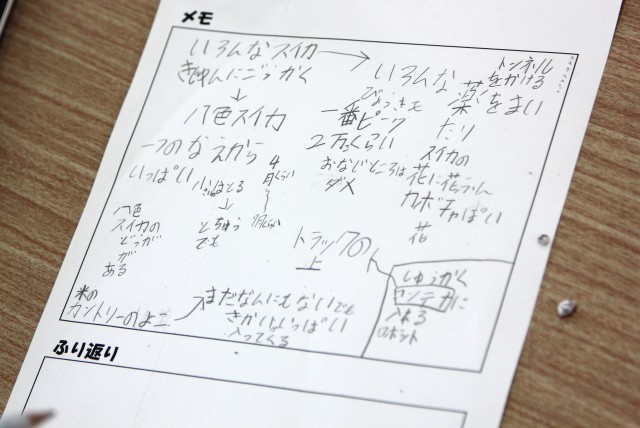 メモ
いろんなスイカ→
きゅんにごうかく
↓
八色スイカ
一つのなえから
いっぱい
小さいはとる
↓
とちゅう
でも
4
月くらい
〜
7月くらい
八色
スイカの
どうが
が
ある
トンネル
をかける
いろんな薬をまい
たり
びょうきも
一番ピーク
2万こくらい
おなじところは
ダメ
スイカの
花に花ふん
カボチャぱい
花
トラックの
上
しゅうかく
コンテナに
入れる
ロボット
米の
カントリーのよこ
まだなんにもないでも
さかいはいっぱい
入ってくる
ふり返り